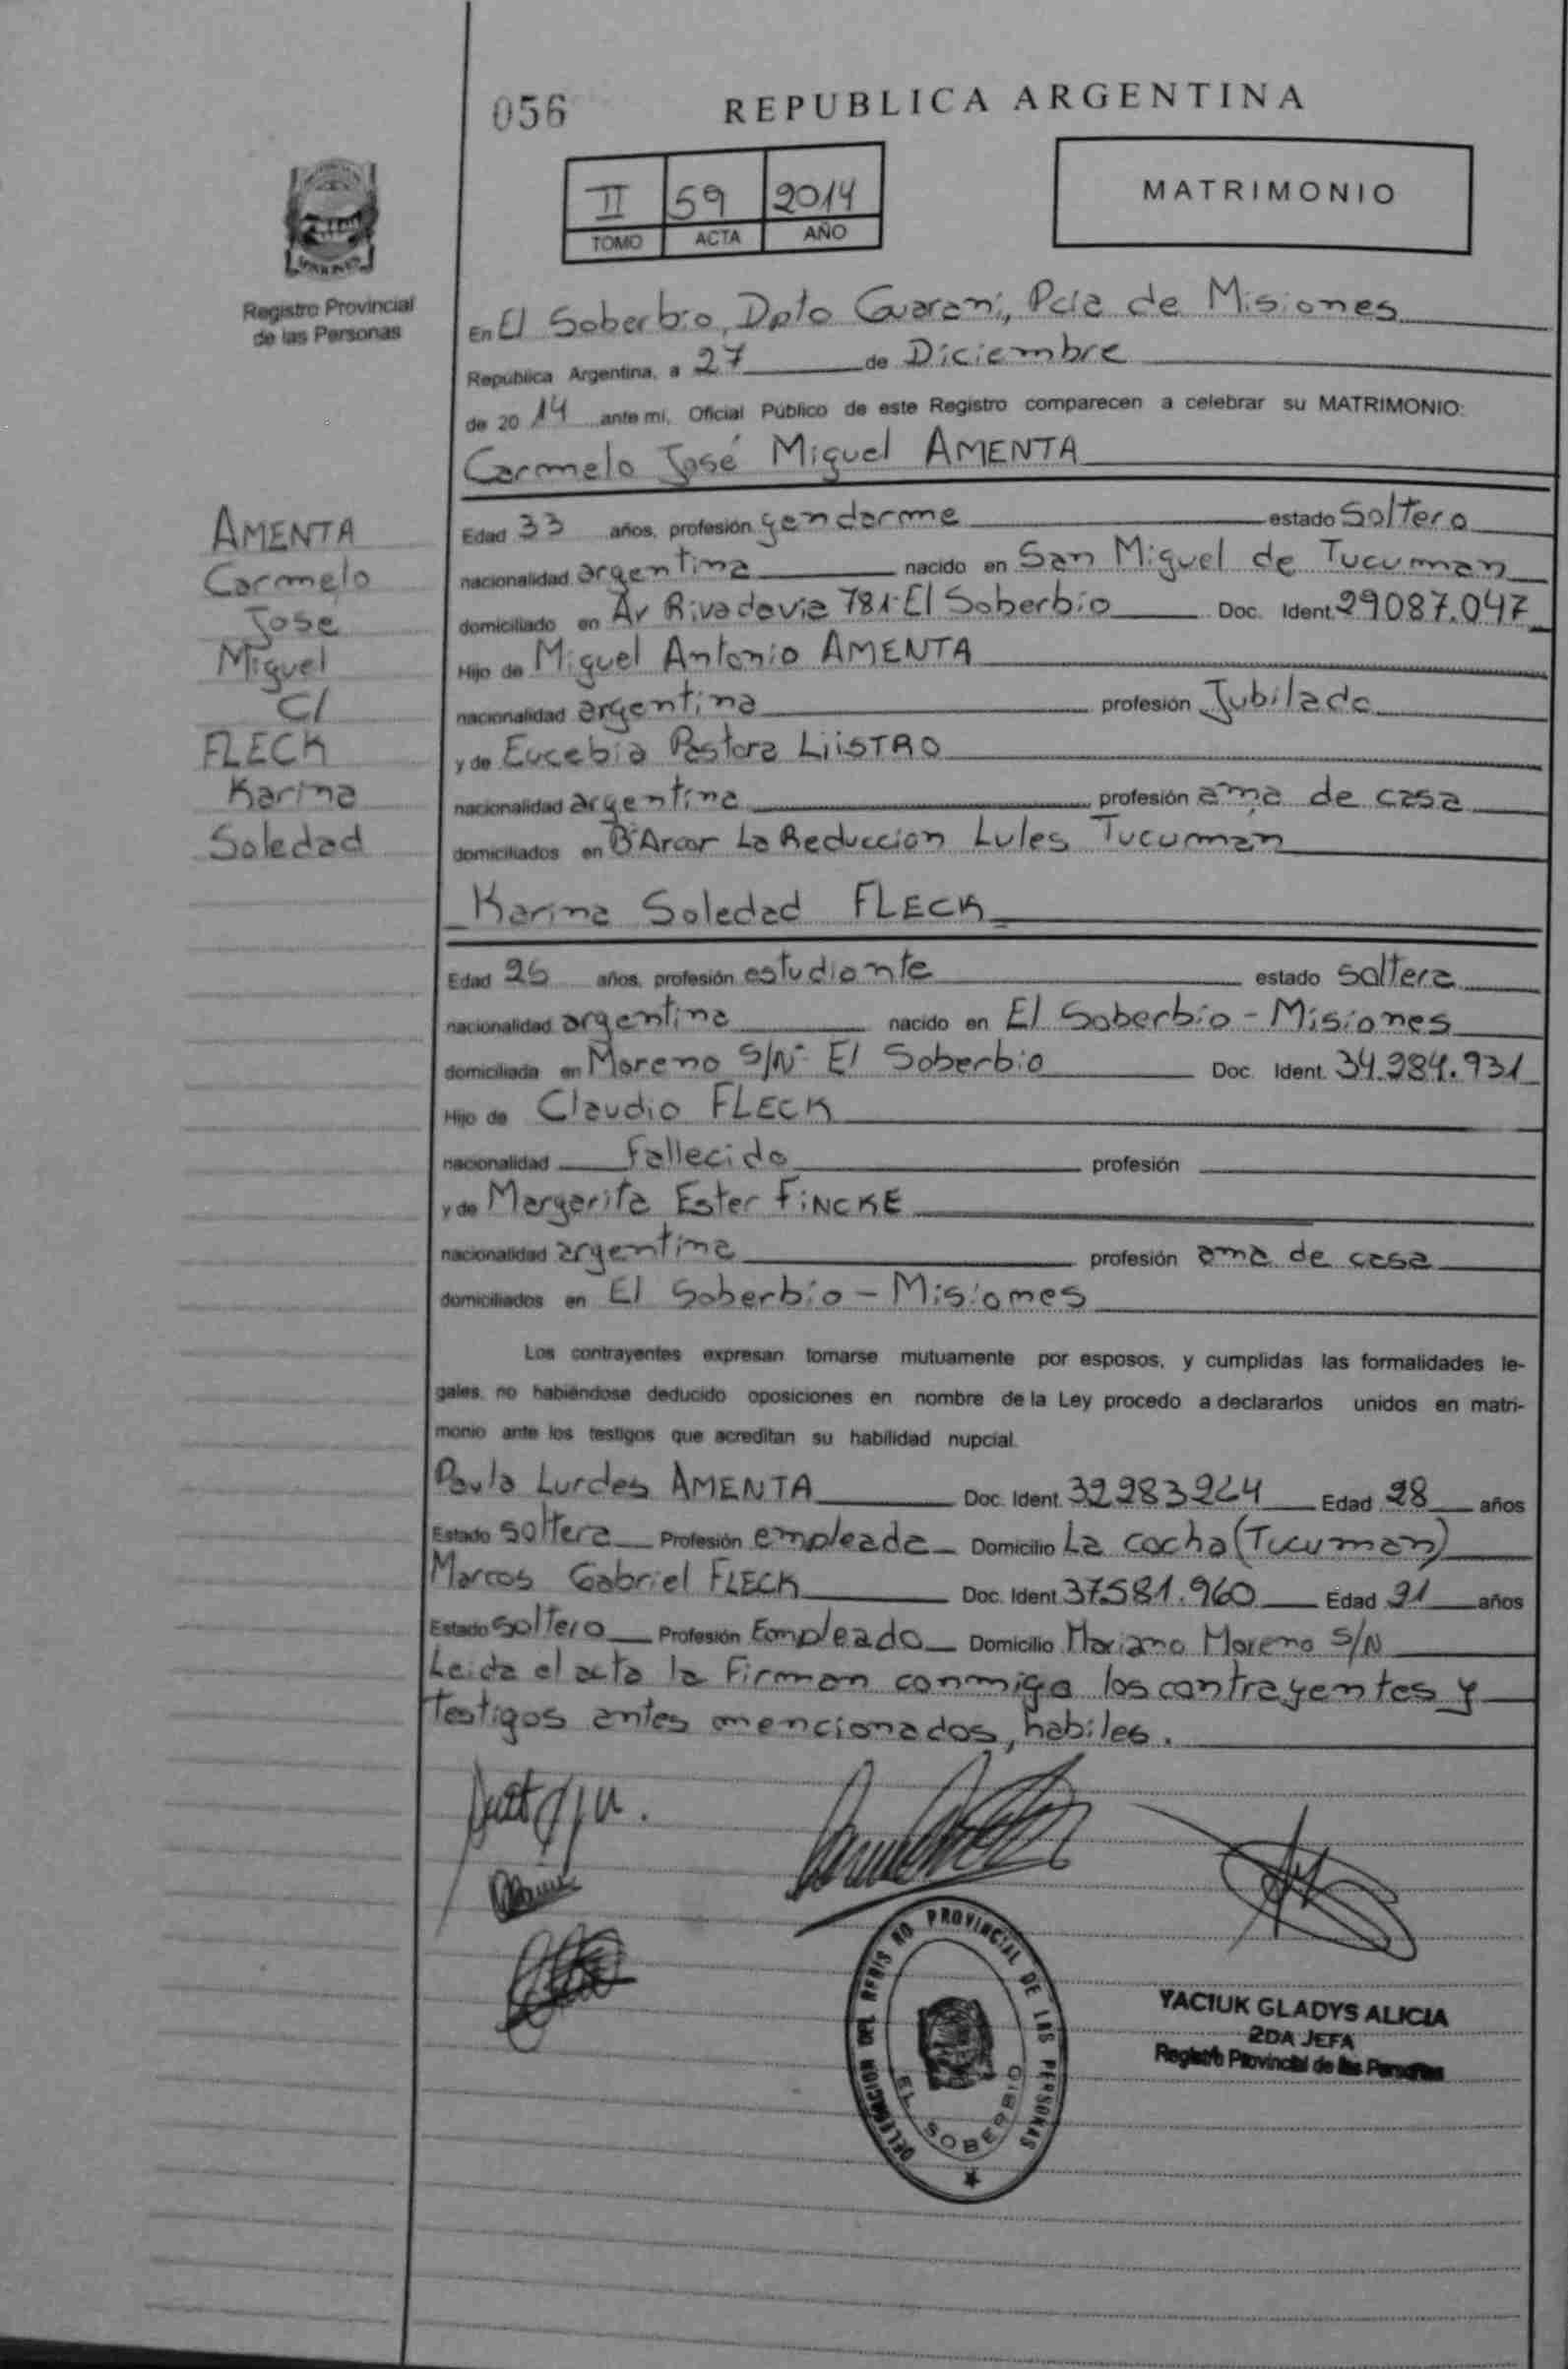 056
REPUBLICA ARGENTINA
II 59 2014
TOMO ACTA AÑO
MATRIMONIO
Registro Provincial
de las Personas
En El Soberbio, Dpto Guarani, Pcia de Misiones
República Argentina, a 27 de Diciembre
de 2014 ante mi, Oficial Público de este Registro comparecen a celebrar su MATRIMONIO:
Carmelo José Miguel AMENTA
AMENTA
Carmelo
Jose
Miguel
C/
FLECK
Karina
Soledad
Edad 33 años, profesión gendarme estado Soltero
nacionalidad argentina nacido en San Miguel de Tucuman
domiciliado en Av Rivadavia 781-El Soberbio Doc. Ident. 29087.047
Hijo de Miguel Antonio AMENTA
nacionalidad argentina profesión Jubilado
y de Eucebia Pastora LiiSTRO
nacionalidad argentina profesión ama de casa
domiciliados en B° Arcor La Reduccion Lules Tucuman
Karina Soledad FLECK
Edad 25 años, profesión estudiante estado soltera
nacionalidad argentina nacido en El Soberbio - Misiones
domiciliada en Moreno S/N° El Soberbio Doc. Ident. 34.284.931
Hijo de Claudio FLECK
nacionalidad Fallecido profesión
y de Margarita Ester FiNCKE
nacionalidad argentina profesión ama de casa
domiciliados en El Soberbio - Misiones
Los contrayentes expresan tomarse mutuamente por esposos, y cumplidas las formalidades le-
gales, no habiéndose deducido oposiciones en nombre de la Ley procedo a declararlos unidos en matri-
monio ante los testigos que acreditan su habilidad nupcial.
Paula Lurdes AMENTA Doc. Ident. 32983224 Edad 28 años
Estado soltera Profesión empleada Domicilio La cocha (Tucuman)
Marcos Gabriel FLECK Doc. Ident 37581.960 Edad 21 años
Estado soltero Profesión Empleado Domicilio Mariano Moreno S/N
Leida el acta la Firman conmigo los contrayentes y
testigos antes mencionados, habiles.
DELEGACION DEL REGISTRO PROVINCIAL DE LAS PERSONAS
EL SOBERBIO
YACIUK GLADYS ALICIA
2DA JEFA
Registro Provincial de las Personas